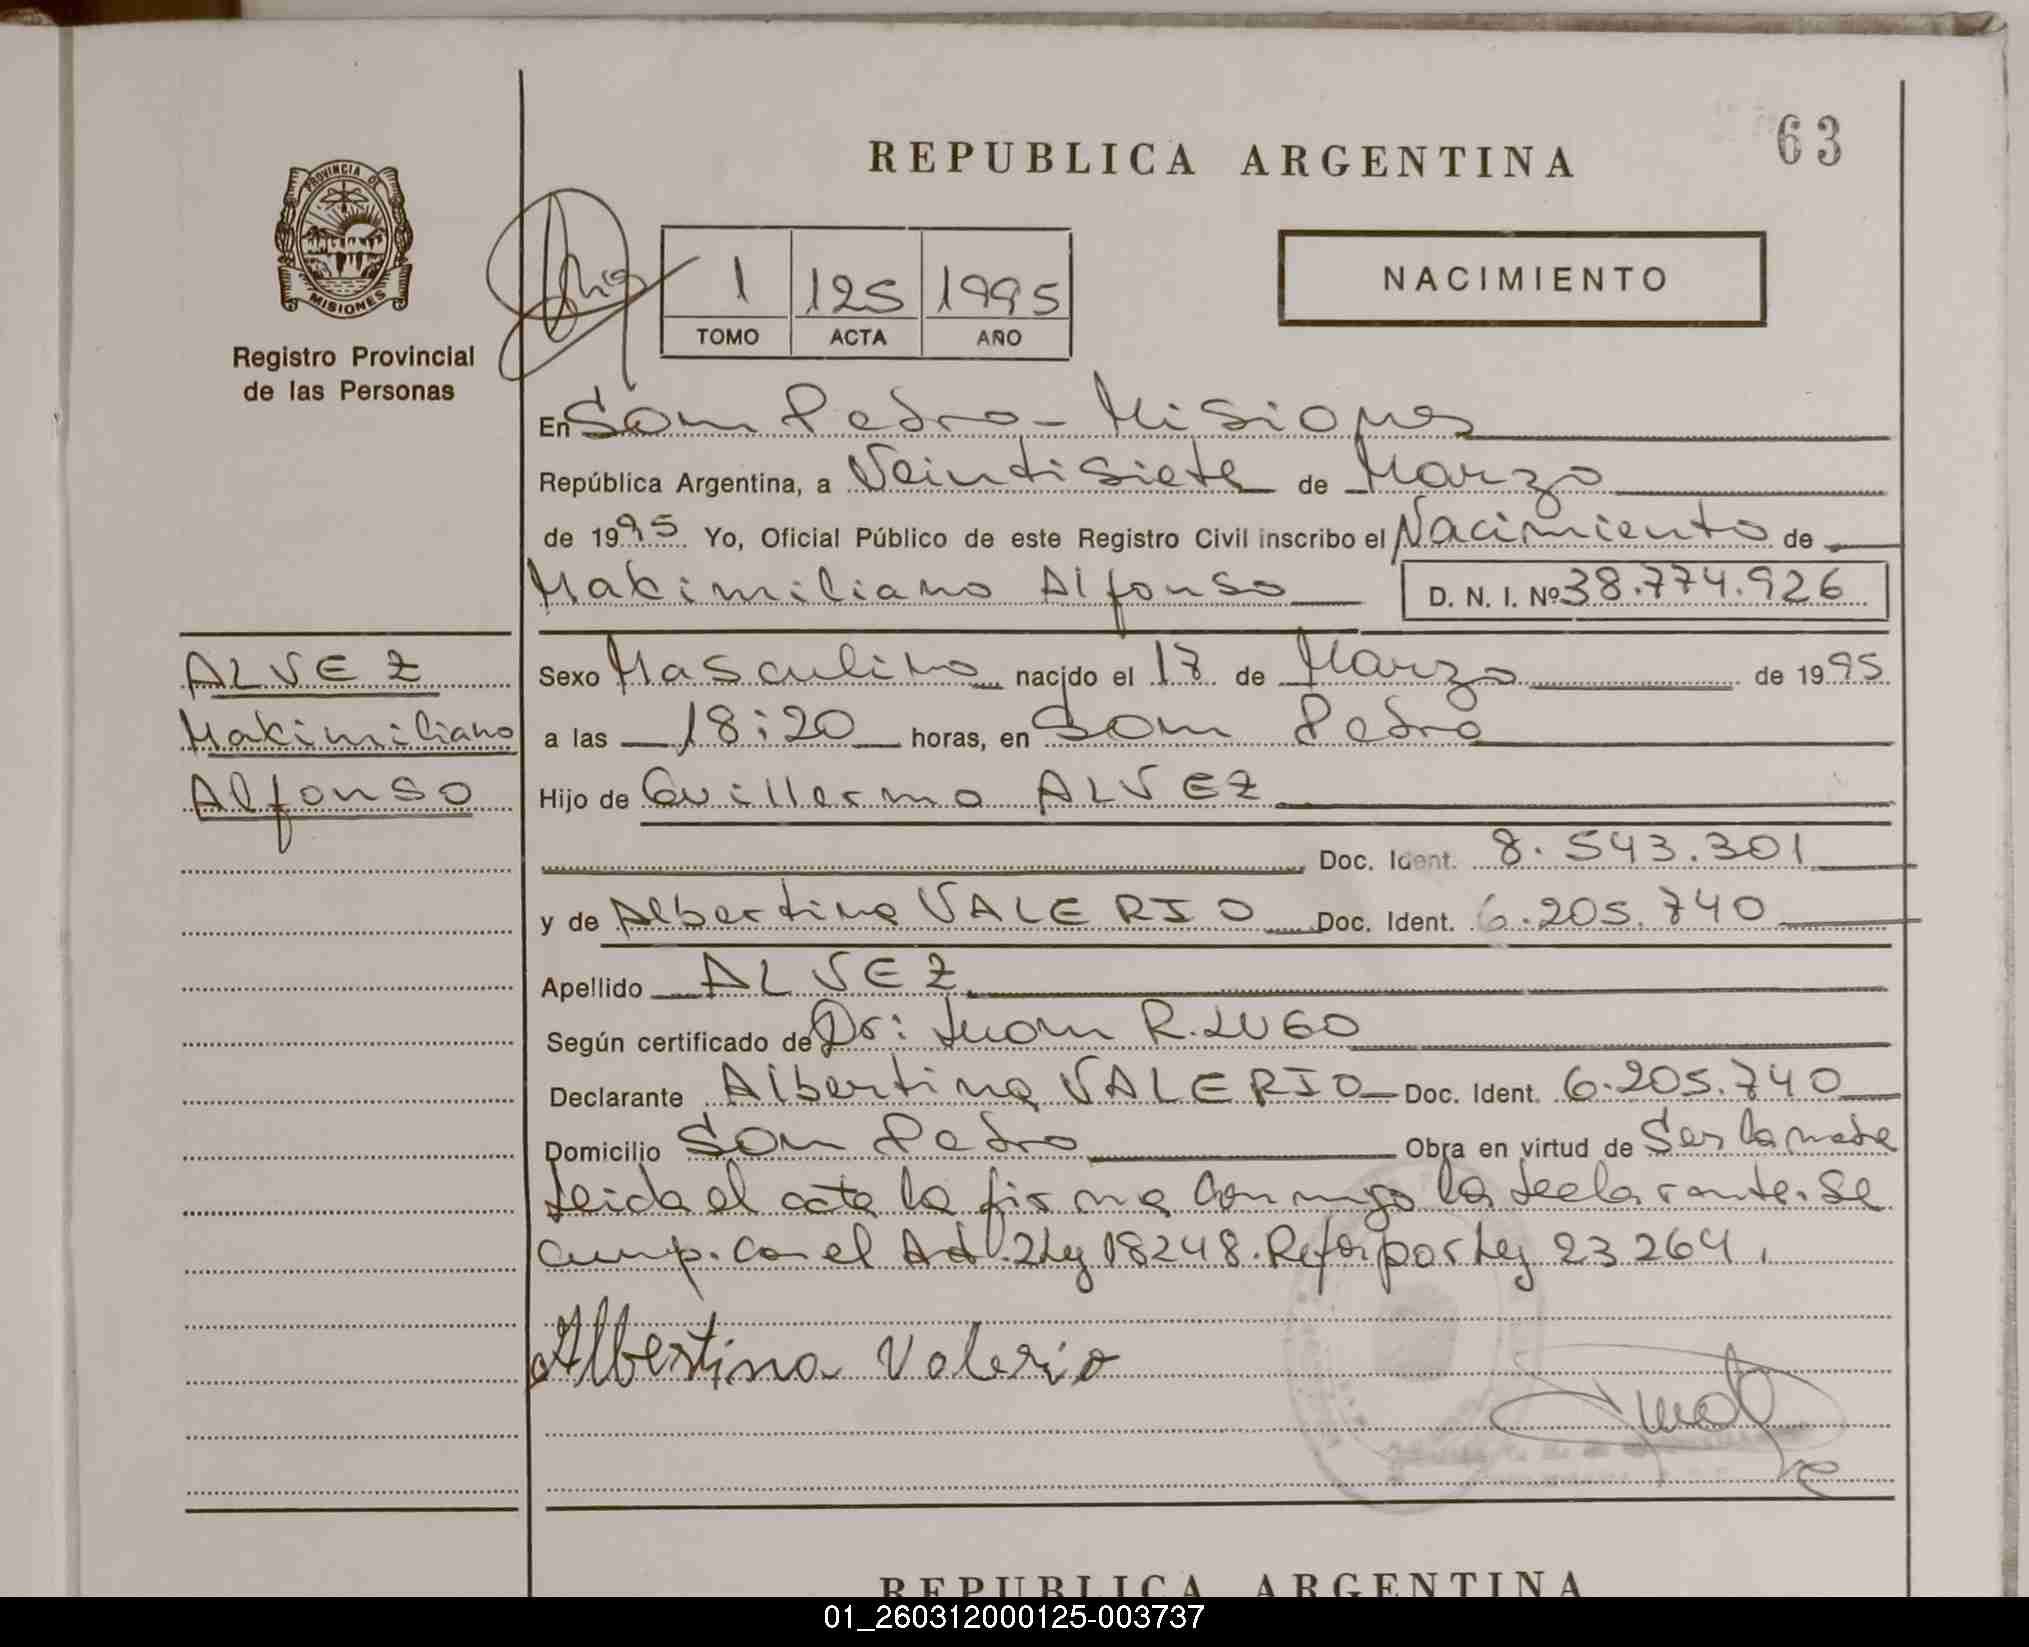 63
REPUBLICA ARGENTINA
PROVINCIA DE
MISIONES
Registro Provincial
de las Personas
1 125 1995
TOMO ACTA AÑO
NACIMIENTO
En San Pedro - Misiones
República Argentina, a Veintisiete de Marzo
de 1995 Yo, Oficial Público de este Registro Civil inscribo el Nacimiento de
Makimiliano Alfonso D. N. I. Nº 38.774.926
ALVEZ
Makimiliano
Alfonso
Sexo Masculino nacido el 17 de Marzo de 1995
a las 18:20 horas, en San Pedro
Hijo de Guillermo ALVEZ
Doc. Ident. 8.543.301
y de Albertina VALERIO Doc. Ident. 6.205.740
Apellido ALVEZ
Según certificado de Dr: Juan R. LUGO
Declarante Albertina VALERIO Doc. Ident. 6.205.740
Domicilio San Pedro Obra en virtud de Ser la madre
Leida el acta la firma conmigo la declarante. Se
cump. con el Art. 2 Ley 18248. Refor por Ley 23264.
Albertina Valerio
REPUBLICA ARGENTINA
01_260312000125-003737